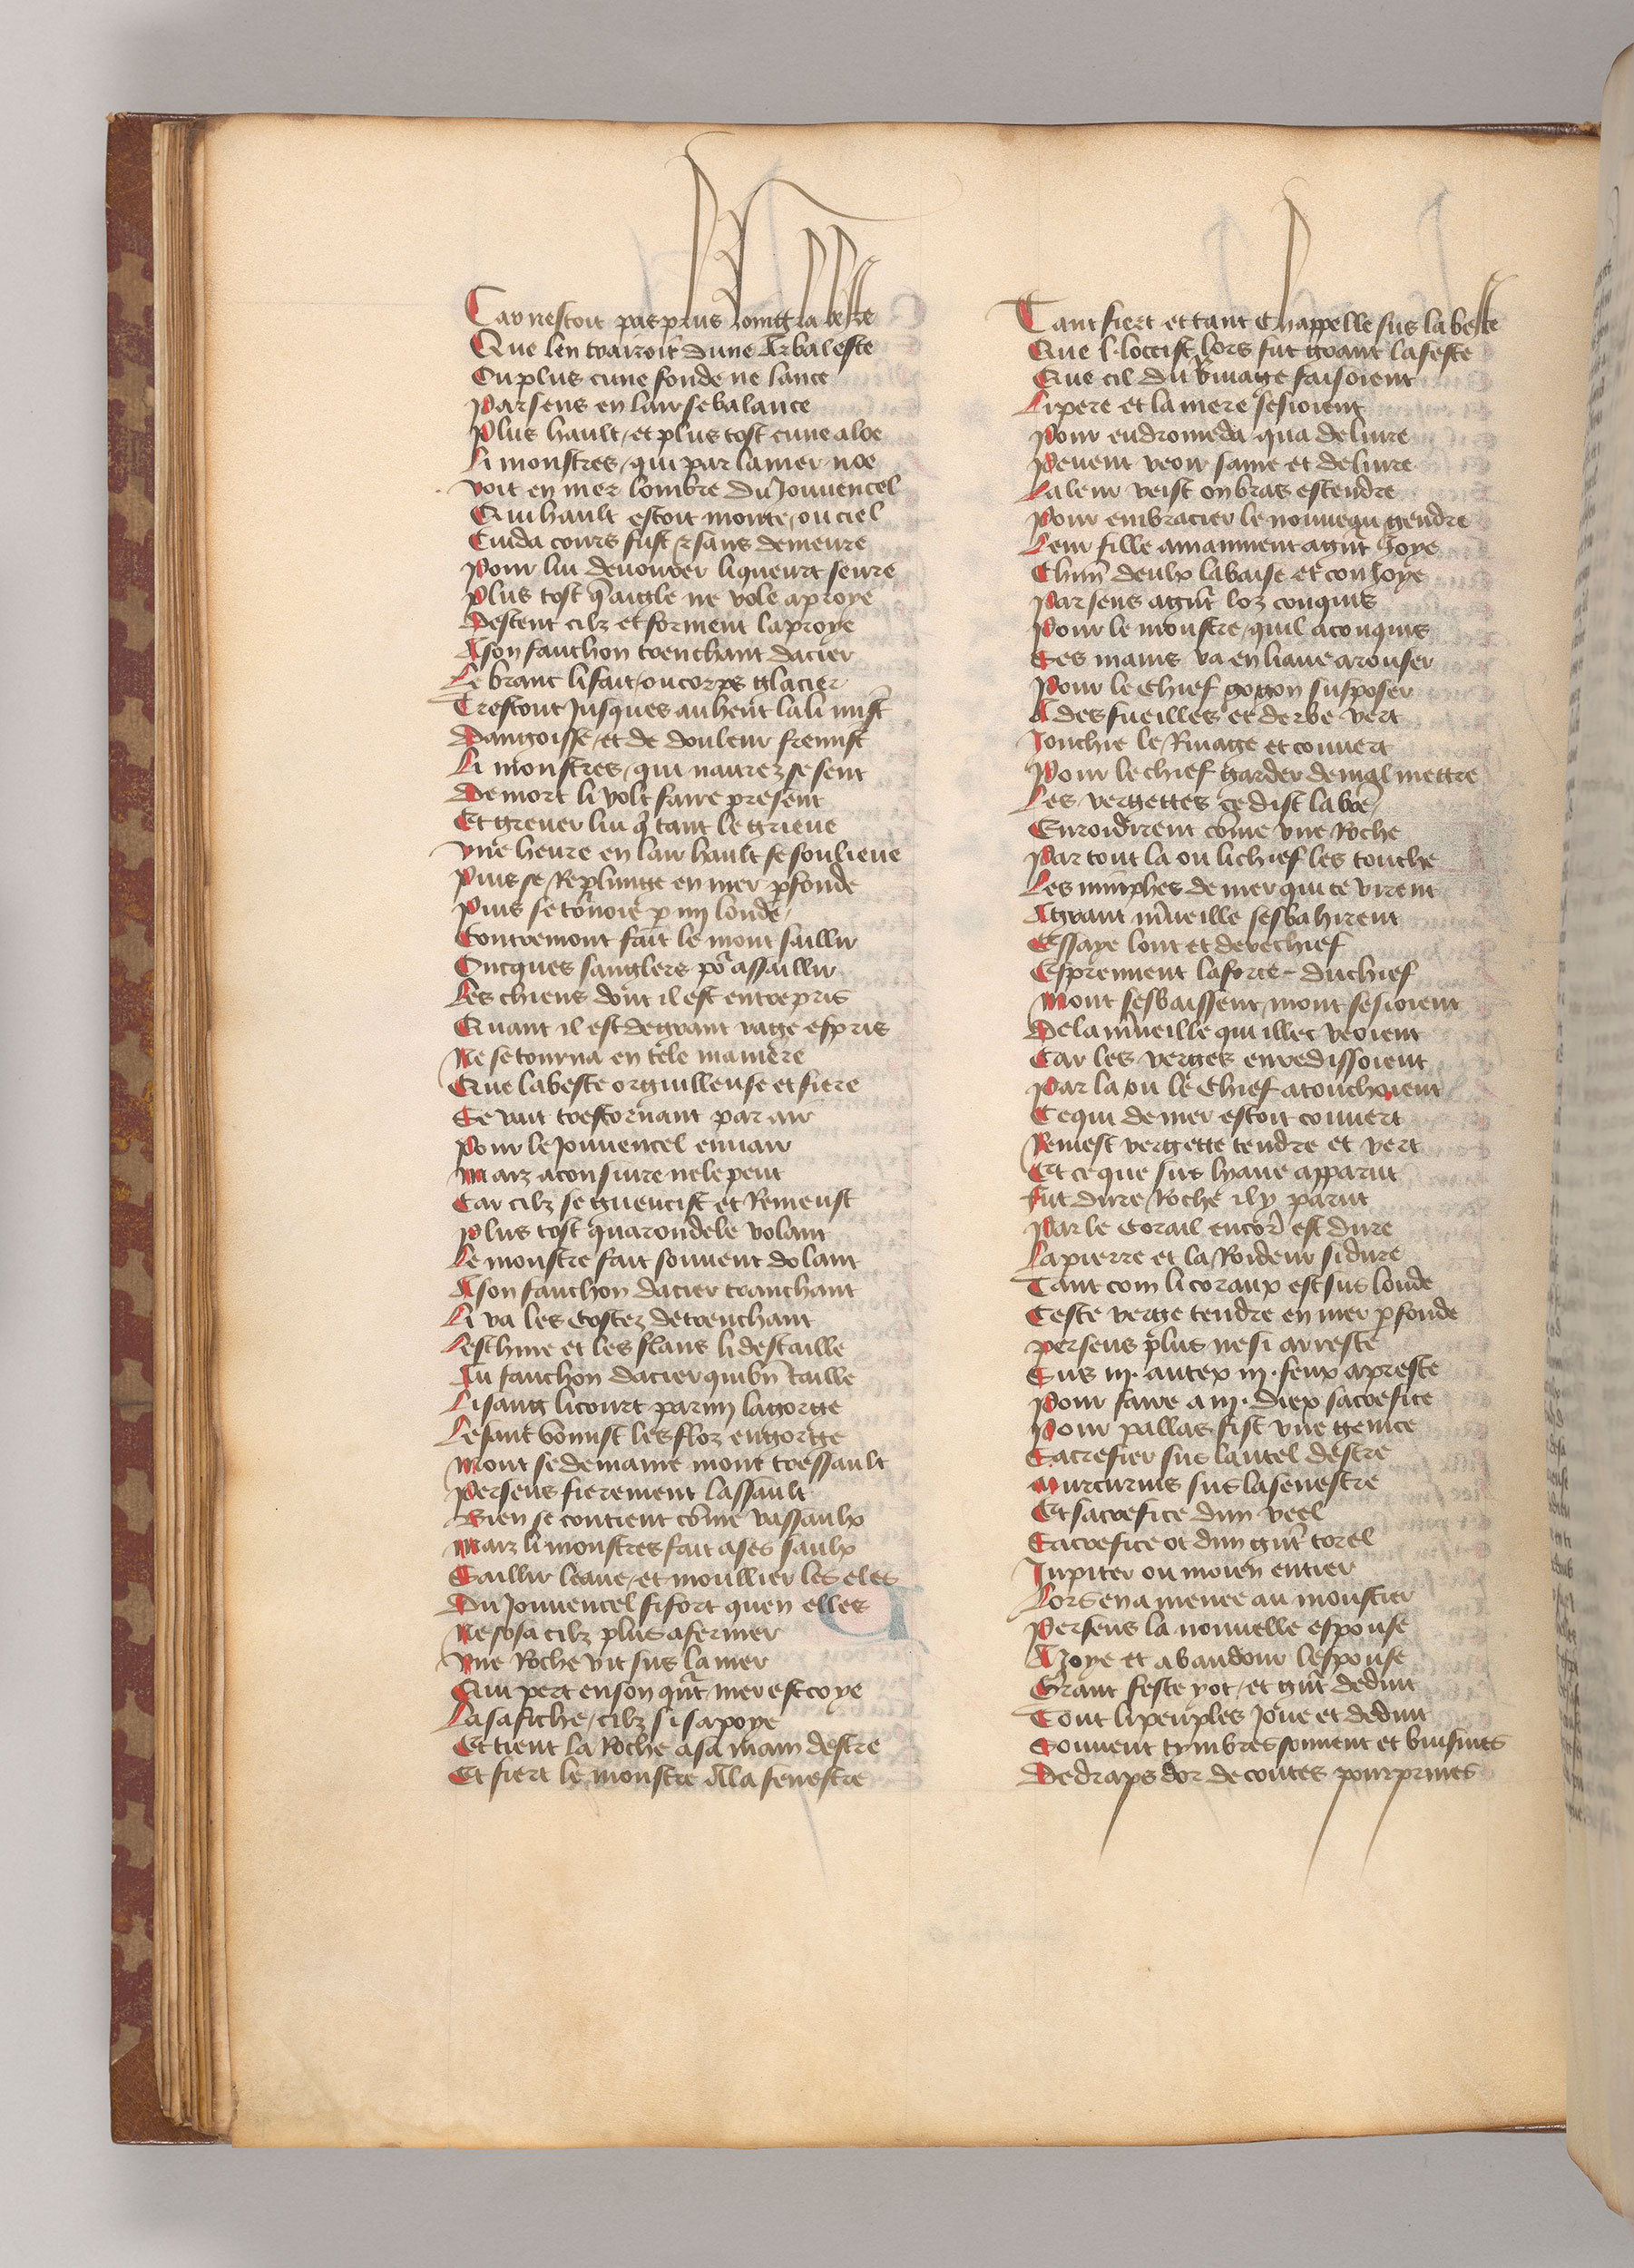 Car nestoit pas plus loing la beste
Que len trairoit dune Arbaleste
Ou plus cune fonde ne lance
Parseus en lair se balance
Plus hault et plus tost cune aloe
Li monstres qui par la mer noe
Voit en mer lombre du Jouuencel
Qui hault estoit monte ou ciel
Cuida corps fust et sans demeure
Pour lui deuourer li queurt seure
Plus tost q̃ aigle ne vole a proye
Destent cilz et forment laproye
A son fauchon trenchant dacier
Le brant li fait ou corps glacier
Trestout Jusques au heut la li mist
Dangoisse et de douleur fremist
Li monstres qui naurez se sent
De mort li volt faire present
Et greuer lui q̃ tant le grieue
Vne heure en lair hault se soulieue
Puis se Replunge en mer p̃fonde
Puis se tornoie p my londe
Contremont fait le mont saillir
Oncques sanglers po2 assaillir
Les chiens dont il est entrepris
Quant il est de grant rage espris
Ne se tourna en tele maniere
Que la beste orguilleuse et fiere
Se vait trestornant par air
Pour le Jouuencel enuair
Marz aconsuire ne le peut
Car cilz se guencist et Remeust
Plus tost quarondele volant
Le monstre fait souuent dolant
A son fauchon dacier tranchant
Li va les Costez detrenchant
Leschine et les flans li destaille
Au fauchon dacier qui bñ taille
Li sang li court parmy la gorge
Le sanc vomist les floz engorge
Mont se demaine mont tressault
Perseus fierement lassault
Bien se contient cõme vassaulx
Marz li monstres fait a ses saulx
Saillir leaue et moullier les eles
Du Jouuencel si fort quen elles
Ne sosa cilz plus afermer
Vne Roche vit sus la mer
Qui pert en son qñt mer est coye
La safiche cilz si sapoye
Et tient la Roche a sa main destre
Et fiert le monstre A la senestre
Tant fiert et tant Chappelle sus la beste
Que l loccist lors fut grant la feste
Que cil du Riuage faisoient
Li pere et la mere sesioient
Pour andromeda qua deliure
Peuent veoir saine et deliure
La leur veist on bras estendre
Pour embracier le nouueau gendre
Leur fille amainnent a gñt Joye
Chũn deulx la baise et conioye
Parseus a gñt loz conquis
Pour le monstre quil a conquis
Ses mains va en liaue arouser
Pour le Chief gorgon susposer
A des fueilles et derbe vert
Jonchie le Riuage et couuert
Pour le chief garder de mal mettre
Les vergettes ce dist la lr̃e
Enroidirent cõme vne Roche
Par tout la ou li chief les touche
Les nimphes de mer qui ce virent
A grant m̃ueille sesbahirent
Essaye lont et derechief
Espreuuent la force duchief
Mont sesbaissent mont sesioient
De la m̃ueille qui illec veoient
Car les verges enredissoient
Par la ou le Chief atouchoient
Ce qui de mer estoit couuert
Remest vergette tendre et vert
Et ce que sus lyaue apparut
Fut dure Roche il y parut
Par le Corail encor est dure
La pierre et la Roideur si dure
Tant com li coraux est sus londe
Ceste verge tendre en mer p̃fonde
Perseus plus nesi arreste
Sus iij autex iij feux apreste
Pour faire a iij diex sacrefice
Pour pallas fist vne genice
Sacrefier sus lautel destre
Murcurius sus la senestre
Et sacrefice dun veel
Sacrefice ot dun gñt torel
Jupiter ou moien entier
Lors en a menee au moustier
Perseus la nouuelle espouse
A Joye et a bandour lespouse
Grant feste y ot et gñt deduit
Tout li peuples Joue et deduit
Souuent tymbres sonnent et buisines
De draps dor de coutes pourprines